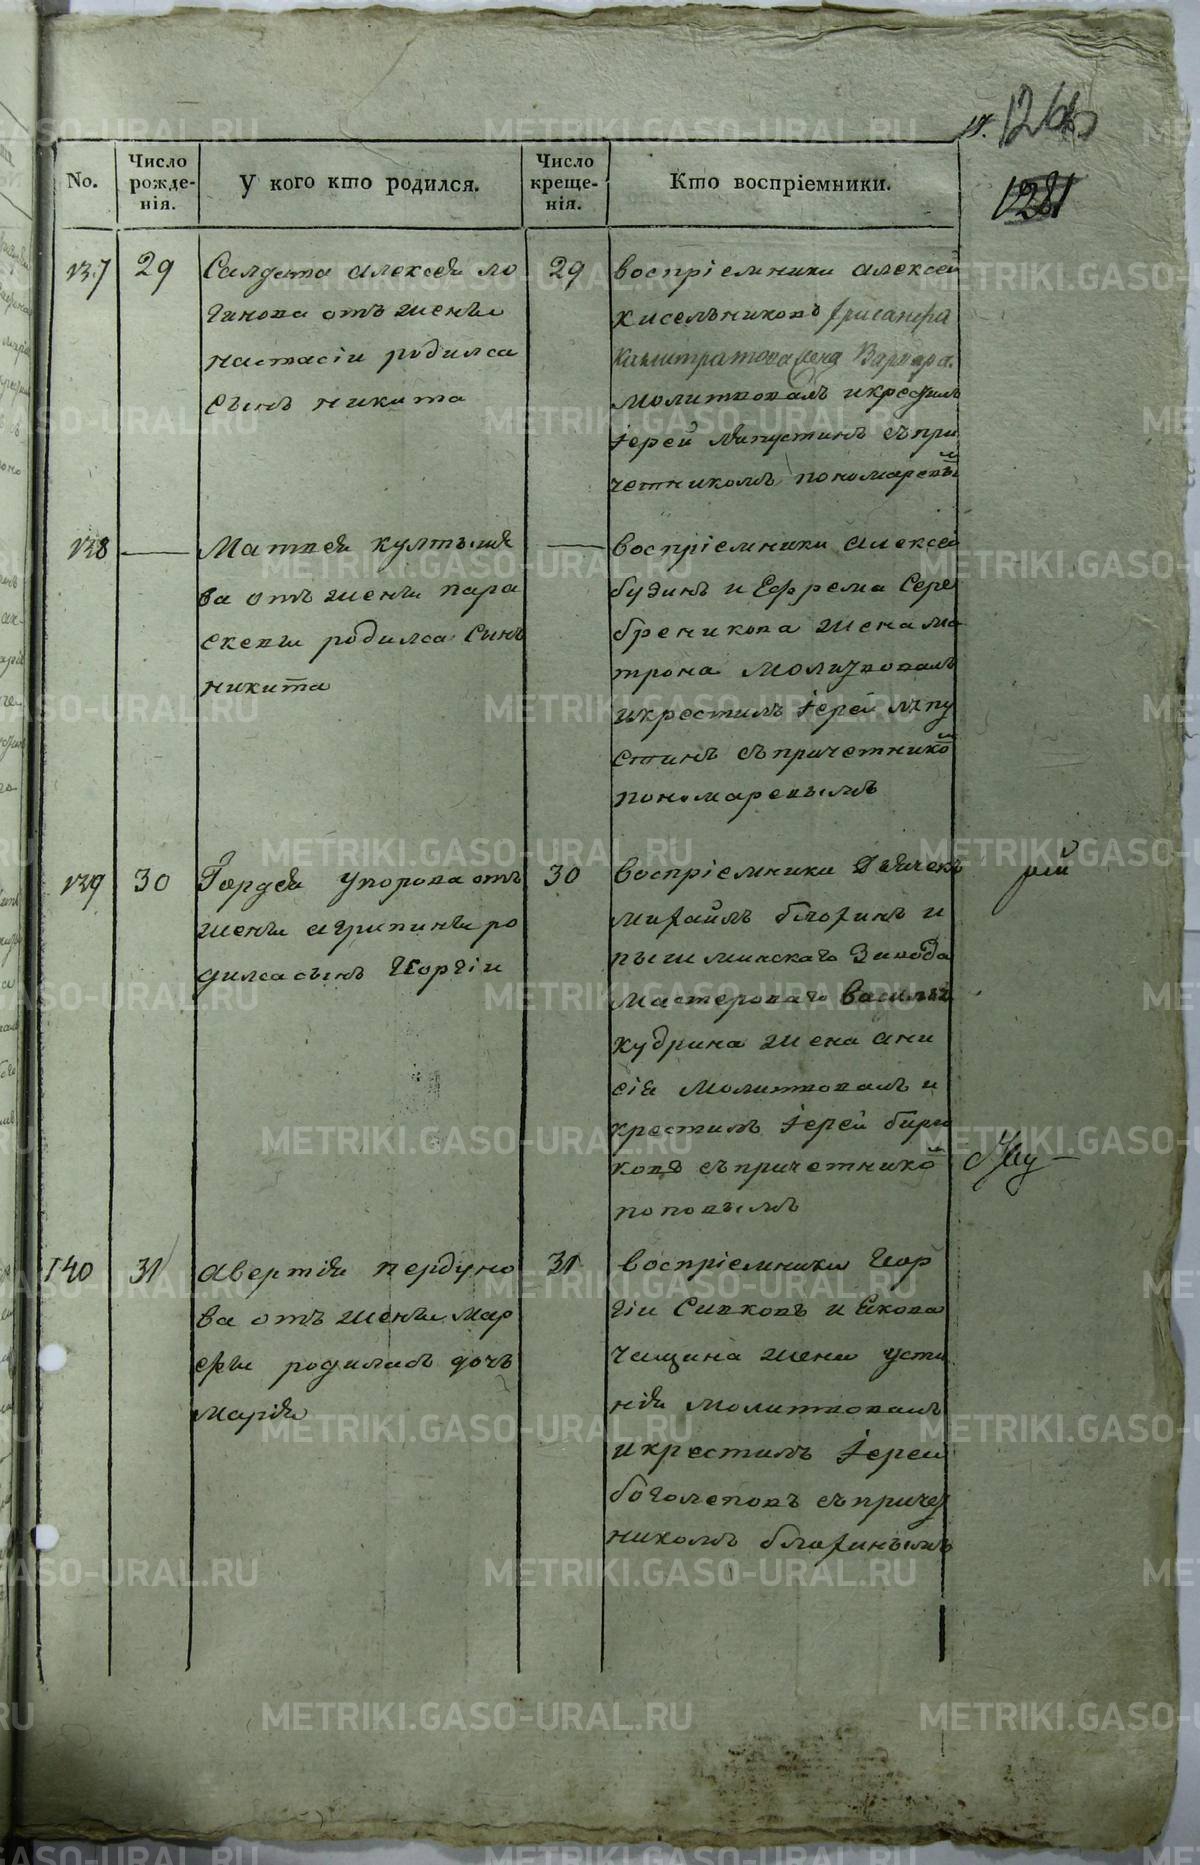 No.
Число рожде- нія.
У кого кто родился.
Число креще- нія.
Кто воспріемники.
1281
137
29
Салдата алексѣя ло
гинова отъ жены
настасіи родилса
сынъ никита
29
воспріемники алексей
кисельниковъ
Калистратова жена Варвара.
молитвовалъ и крестилъ
іерей лапустинъ съ при
четникомъ пономаревы м
138
Матвея култыше
ва отъ жены пара
скевы родилса синъ
никита
воспріемники алексей
будинъ и Ефрема Сере
бреникова жена ма
трона молитвовалъ
и крестилъ іерей лапу
стинъ съ причетнико м
пономаревымъ
139
30
Гордея упорова отъ
жены агрипины ро
дилса сынъ Георгіи
30
воспріемники Дьячекъ
михайлъ блохинъ и
пышминскаго завода
мастероваго василья
кудрина жена ани
сія молитвовалъ и
крестилъ іерей бирю
ковъ съ причетнико м
поповымъ
140
31
аверткія пердуно
ва отъ жены мар
ѳы родиласъ дочь
марія
31
воспріемники Геор
гіи Сивковъ и Якова
чащина жена усти
нія молитвовалъ
и крестилъ іерей
боголеповъ съ причет
никомъ блохинымъ
METRIKI.GASO-URAL.RU